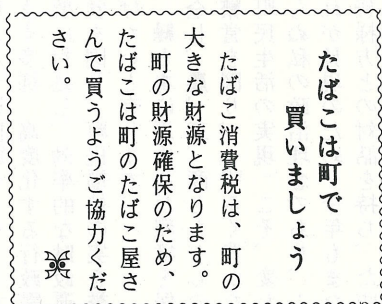 たばこは町で
買いましょう
たばこ消費税は、町の
大きな財源となります。
町の財源確保のため、
たばこは町のたばこ屋さ
んで買うようご協力くだ
さい。